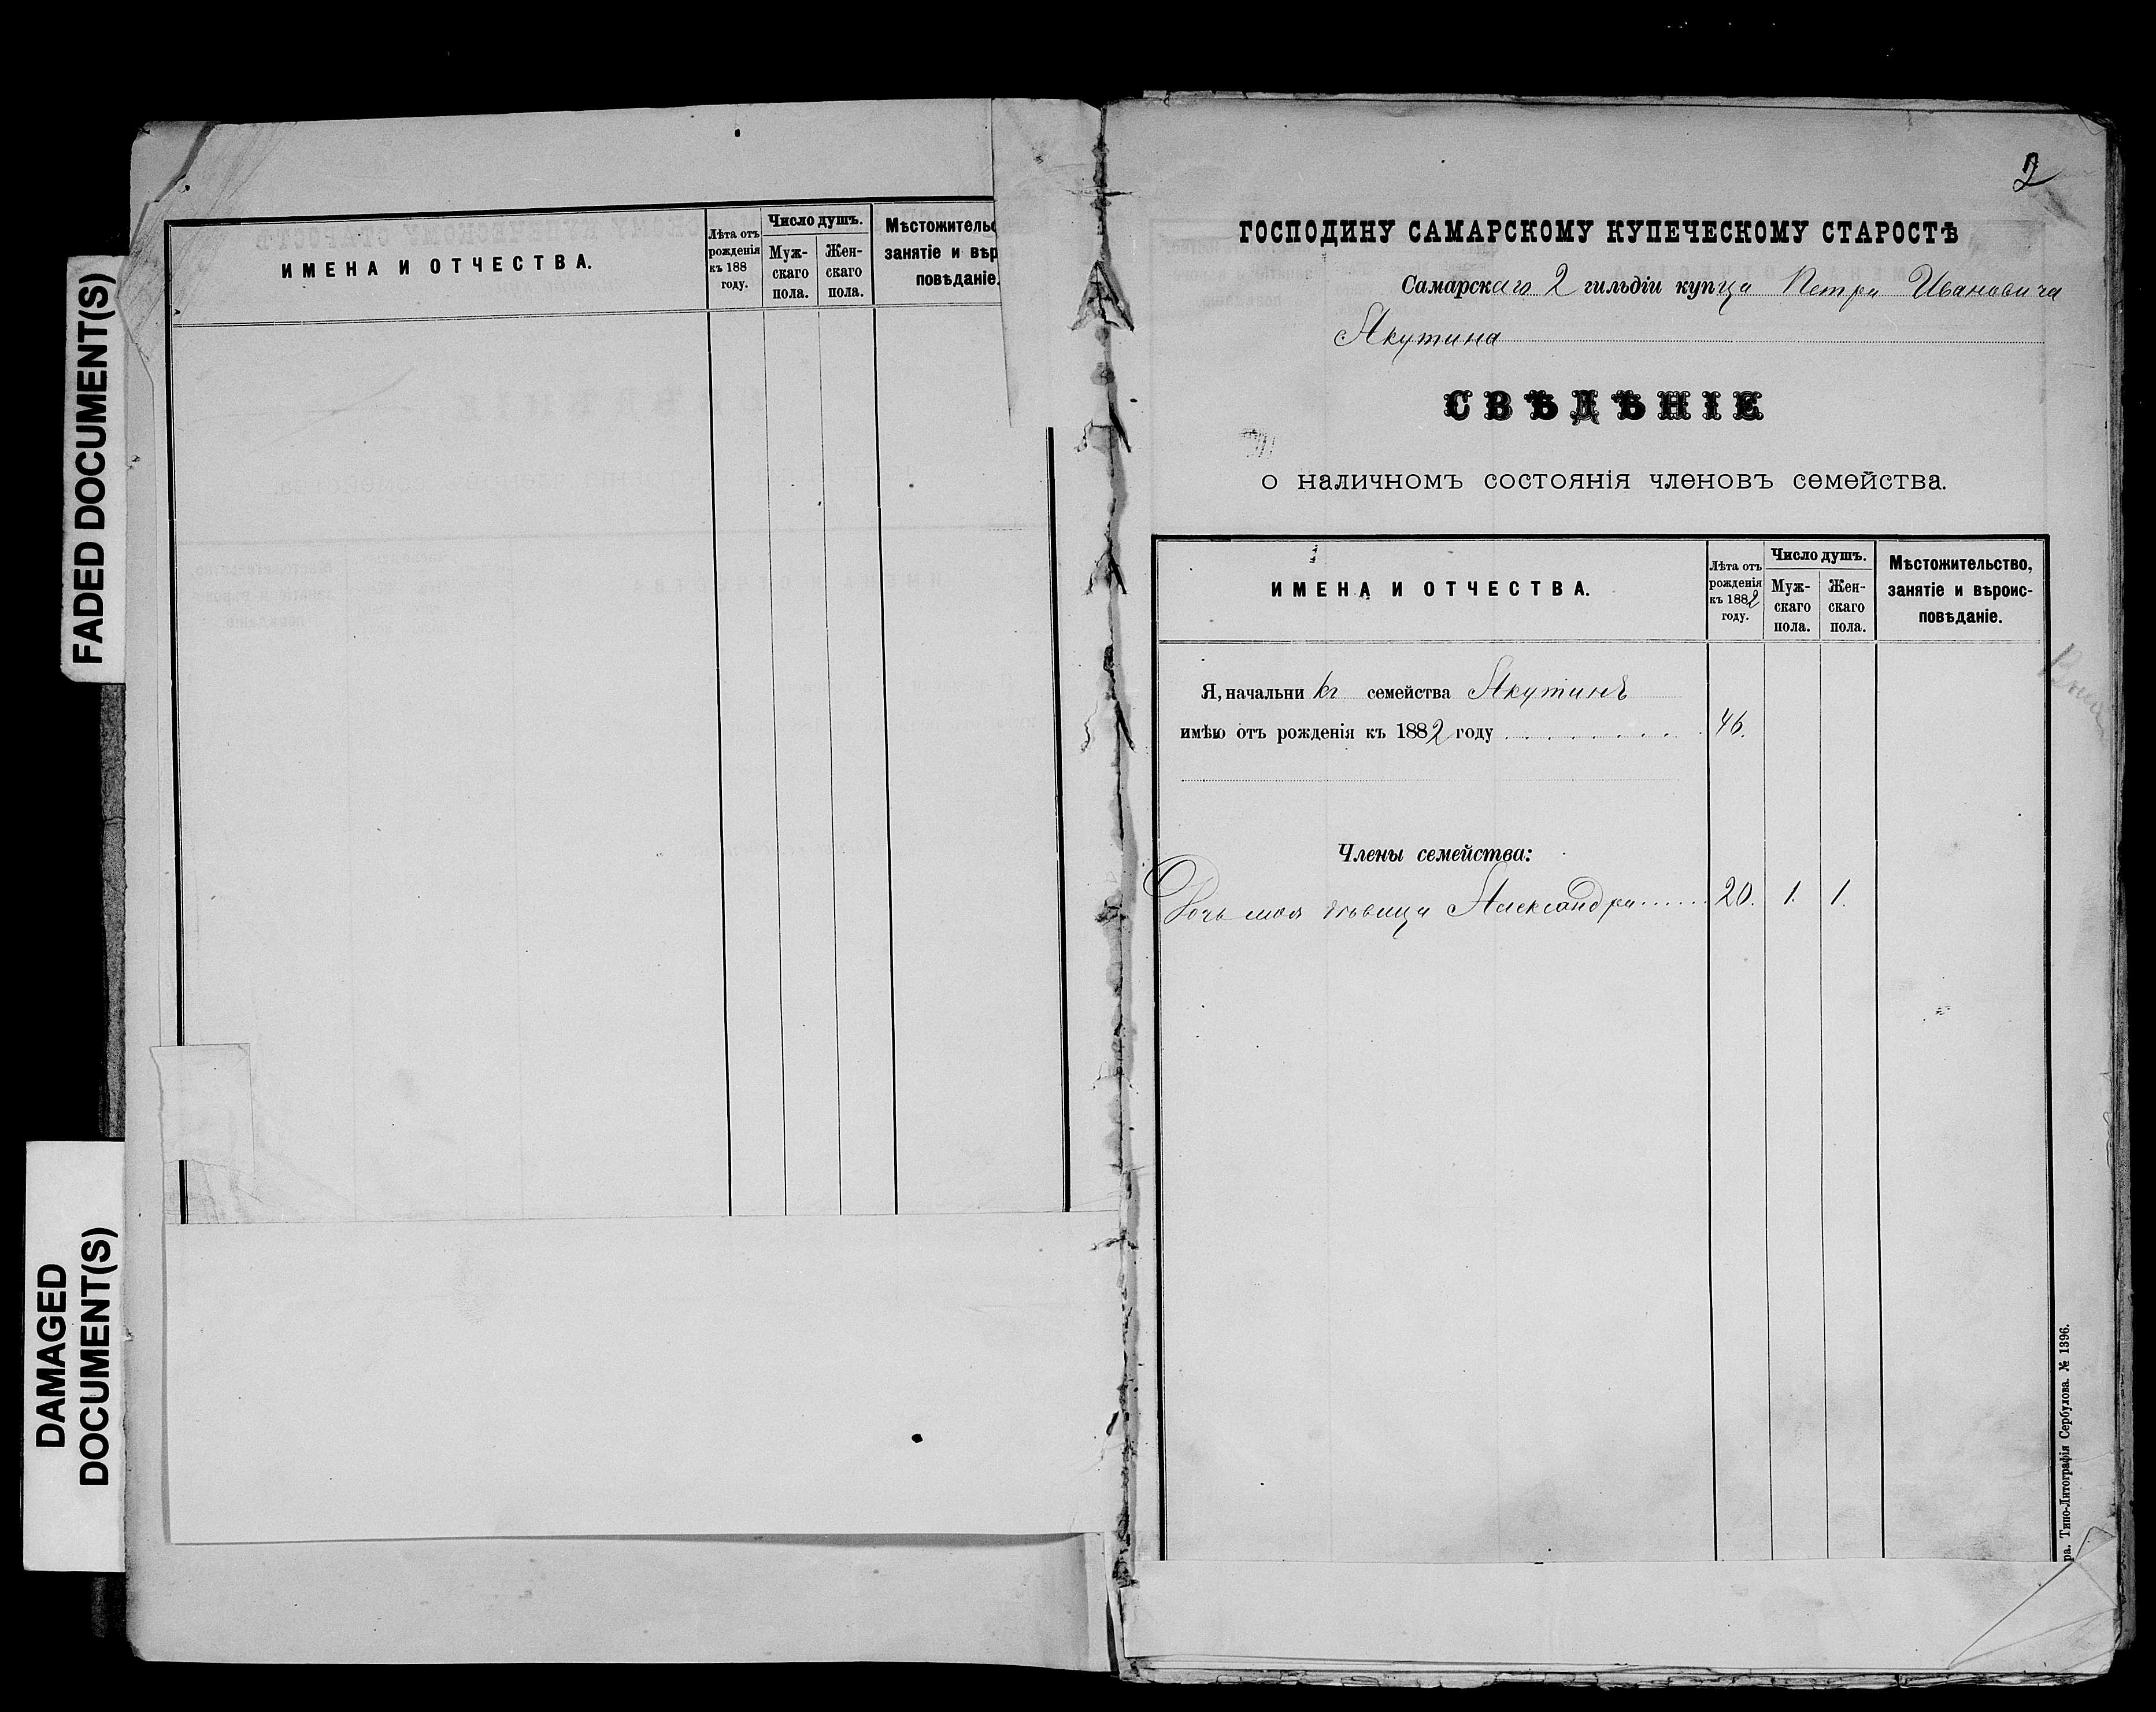 FADED DOCUMENT(S)
DAMAGED
DOCUMENT(S)
ИМЕНА И ОТЧЕСТВА.
Лѣта отъ
рожденія
къ 188
году.
Число душъ.
Муж-
скаго
пола.
Жен-
скаго
пола.
Мѣстожительс
занятіе и вѣр
повѣданіе.
2
ГОСПОДИНУ САМАРСКОМУ КУПЕЧЕСКОМУ СТАРОСТѢ
Самарскаго 2 гильдіи купца Петра Ивановича
Якутина
СВѢДѢНІЕ
о наличномъ состоянія членовъ семейства.
ИМЕНА И ОТЧЕСТВА.
Лѣта отъ
рожденія
къ 1882
году.
Число душъ.
Муж-
скаго
пола.
Жен-
скаго
пола.
Мѣстожительство,
занятіе и вѣроис-
повѣданіе.
Я, начальникъ семейства Якутинъ
имѣю отъ рожденія къ 1882 году . . . . . . . . . 46.
Члены семейства:
Дочь моя дѣвица Александра...... 20. 1. 1.
ра. Типо-Литографія Сербулова. № 1396.